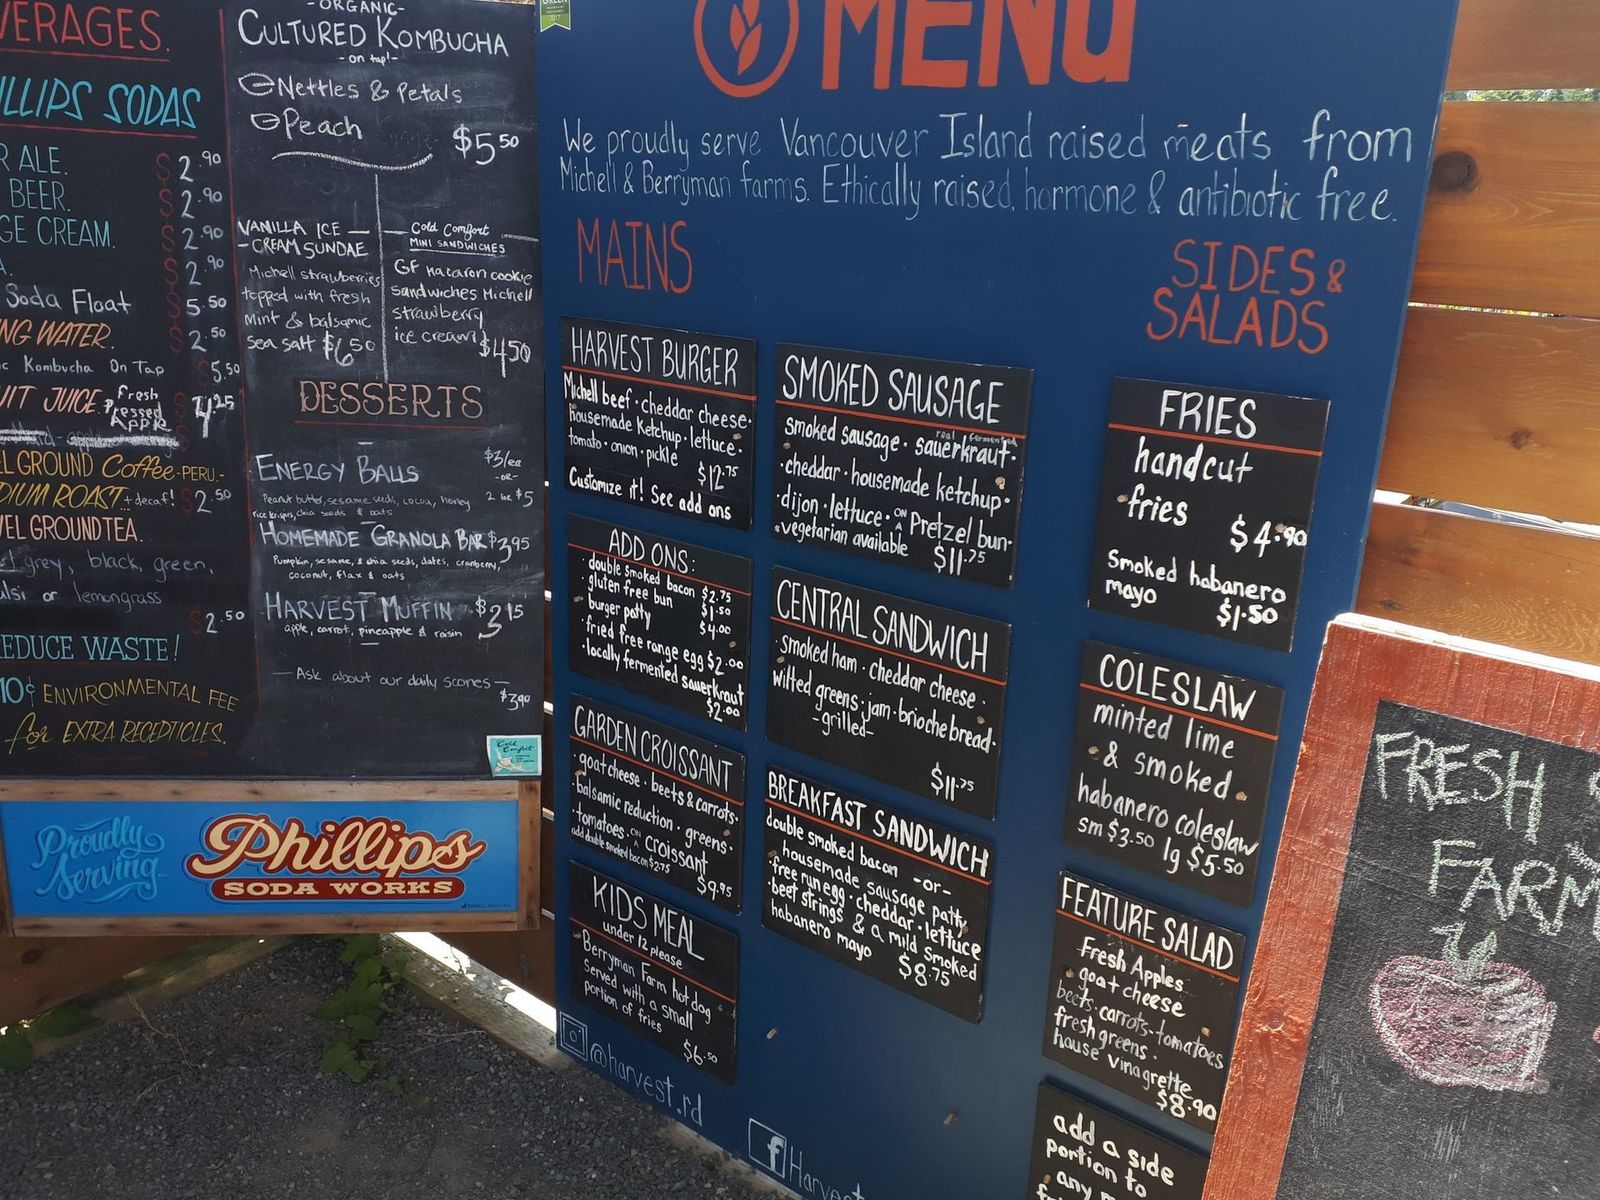 VERAGES.
ILLIPS SODAS
R ALE. $2.90
BEER. $2.90
GE CREAM. $2.90
A. $2.90
Soda Float $5.50
NG WATER. $2.50
c Kombucha On Tap $5.50
UIT JUICE. Fresh Pressed Apple $4.25
EL GROUND Coffee -PERU.-
DIUM ROAST + decaf! $2.50
VEL GROUND TEA.
grey, black, green,
ulsi or lemongrass
$2.50
EDUCE WASTE!
10¢ ENVIRONMENTAL FEE
for EXTRA RECEPTICLES.
-ORGANIC-
CULTURED KOMBUCHA
-on tap!-
Nettles & Petals
Peach
$5.50
VANILLA ICE
CREAM SUNDAE
Michell strawberries
topped with fresh
mint & balsamic
sea salt $6.50
Cold Comfort
MINI SANDWICHES
GF macaron cookie
sandwiches Michell
strawberry
ice cream $4.50
DESSERTS
ENERGY BALLS $3/ea
-OR-
Peanut butter, sesame seeds, cocoa, honey 2 for $5
rice krispies, chia seeds & oats
HOMEMADE GRANOLA BAR $3.95
Pumpkin, sesame, & chia seeds, dates, cranberry,
coconut, flax & oats
HARVEST MUFFIN $3.15
apple, carrot, pineapple & raisin
—Ask about our daily scones—
$3.90
Cold Comfort
Proudly
Serving
Phillips
SODA WORKS
2017
MENU
We proudly serve Vancouver Island raised meats from
Michell & Berryman farms. Ethically raised, hormone & antibiotic free.
MAINS
HARVEST BURGER
Michell beef · cheddar cheese ·
housemade ketchup · lettuce ·
tomato · onion · pickle
$12.75
Customize it! See add ons
ADD ONS:
double smoked bacon $2.75
gluten free bun $1.50
burger patty $4.00
· fried free range egg $2.00
· locally fermented sauerkraut
$2.00
GARDEN CROISSANT
· goat cheese · beets & carrots ·
· balsamic reduction · greens ·
· tomatoes · ON croissant
add double smoked bacon $2.75
$9.95
KIDS MEAL
under 12 please
Berryman Farm hot dog
Served with a small
portion of fries
$6.50
@harvest.rd
SMOKED SAUSAGE
smoked sausage · real fermented sauerkraut ·
· cheddar · housemade ketchup ·
· dijon · lettuce · ON A Pretzel bun ·
vegetarian available $11.75
CENTRAL SANDWICH
· smoked ham · cheddar cheese ·
wilted greens · jam · brioche bread ·
-grilled-
$11.75
BREAKFAST SANDWICH
double smoked bacon -or-
housemade sausage patty
· free run egg · cheddar · lettuce
· beet strings & a mild smoked
habanero mayo $8.75
f Harvest
SIDES &
SALADS
FRIES
handcut
fries
$4.90
Smoked habanero
mayo $1.50
COLESLAW
minted lime
& smoked
habanero coleslaw
sm $3.50 lg $5.50
FEATURE SALAD
Fresh Apples
goat cheese
beets · carrots · tomatoes
fresh greens ·
house vinagrette
$8.90
add a side
portion to
any
FRESH
FARM